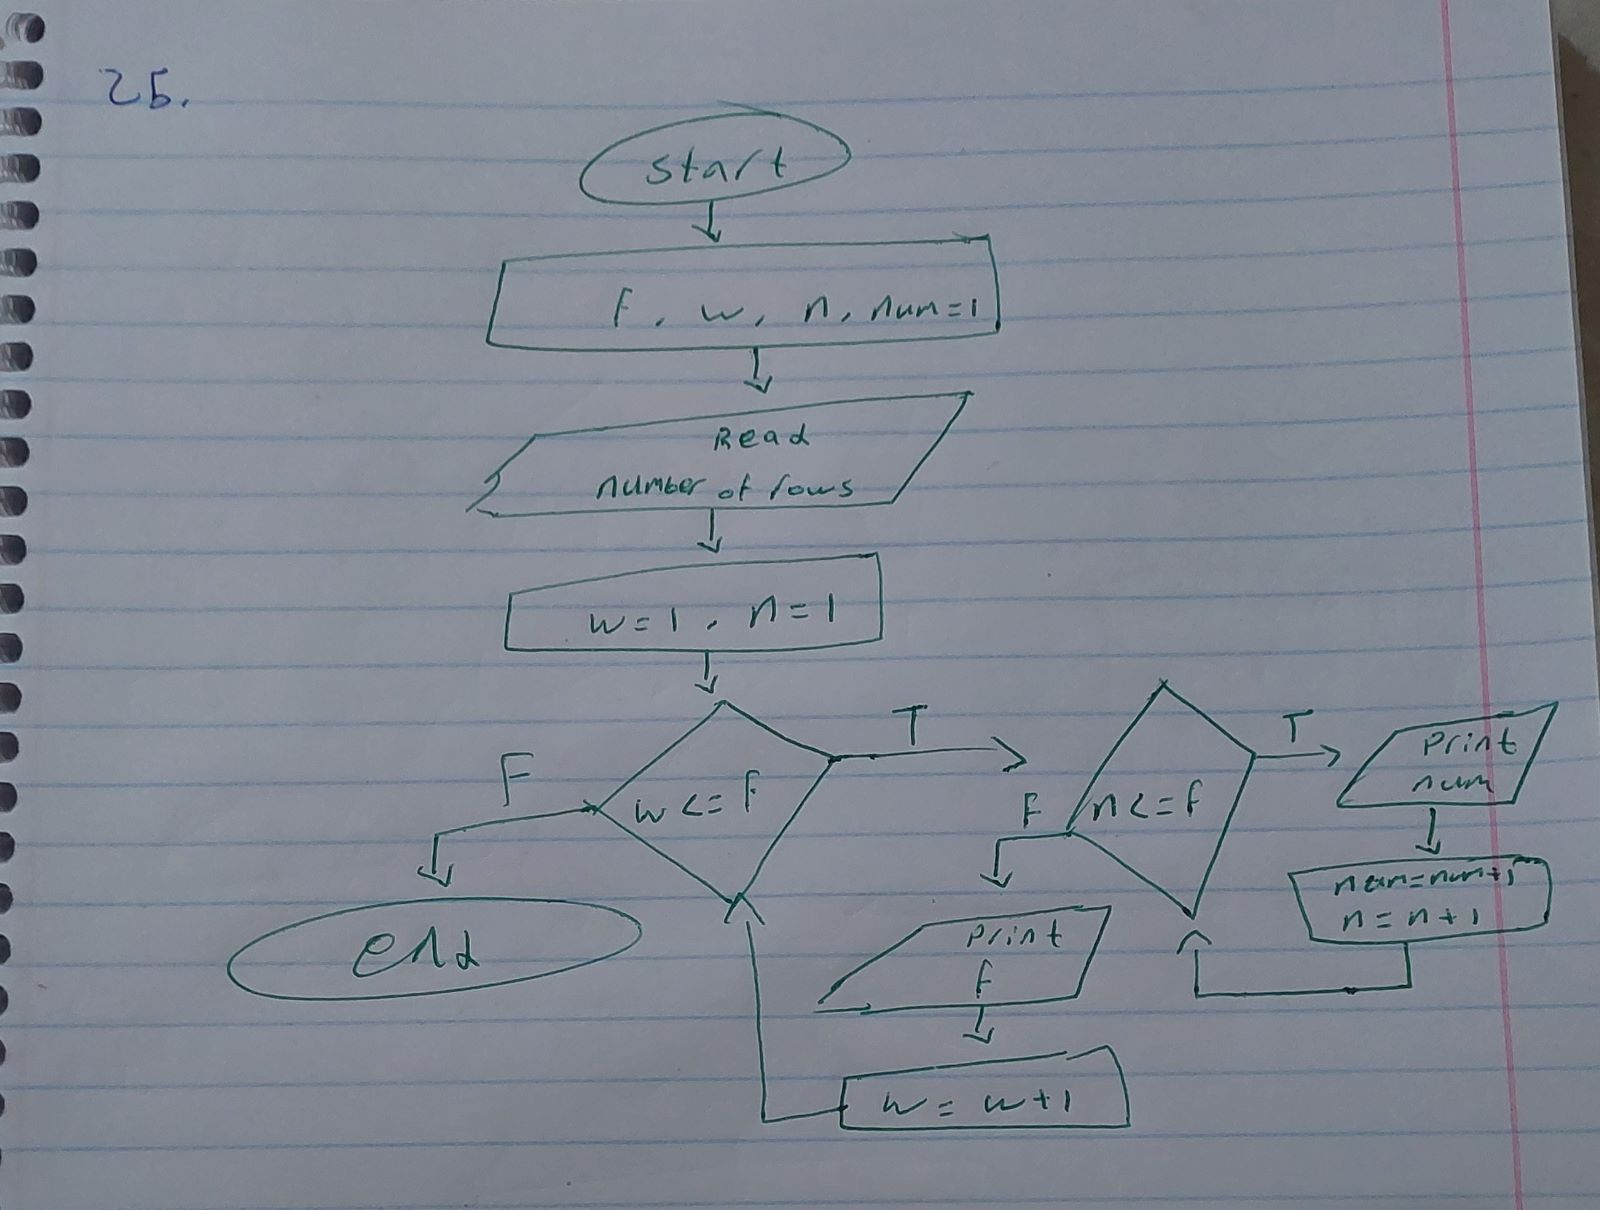 25.
start
f, w, n, num=1
Read
number of rows
w=1, n=1
F
w<=f
T
F
n<=f
T
print
num
num=num+1
n=n+1
end
print
f
w=w+1